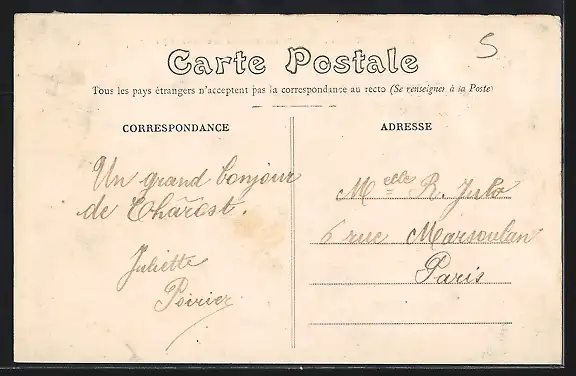 S
Carte Postale
Tous les pays étrangers n'acceptent pas la correspondance au recto (Se renseigner à la Poste)
CORRESPONDANCE
ADRESSE
Un grand bonjour
de Chârost.
Juliette
Poirier
Melle R.
6 rue Marsoulan
Paris